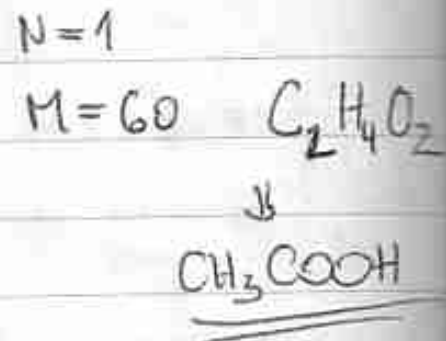 N=1
M=60 C₂H₄O₂
⇓
CH₃COOH